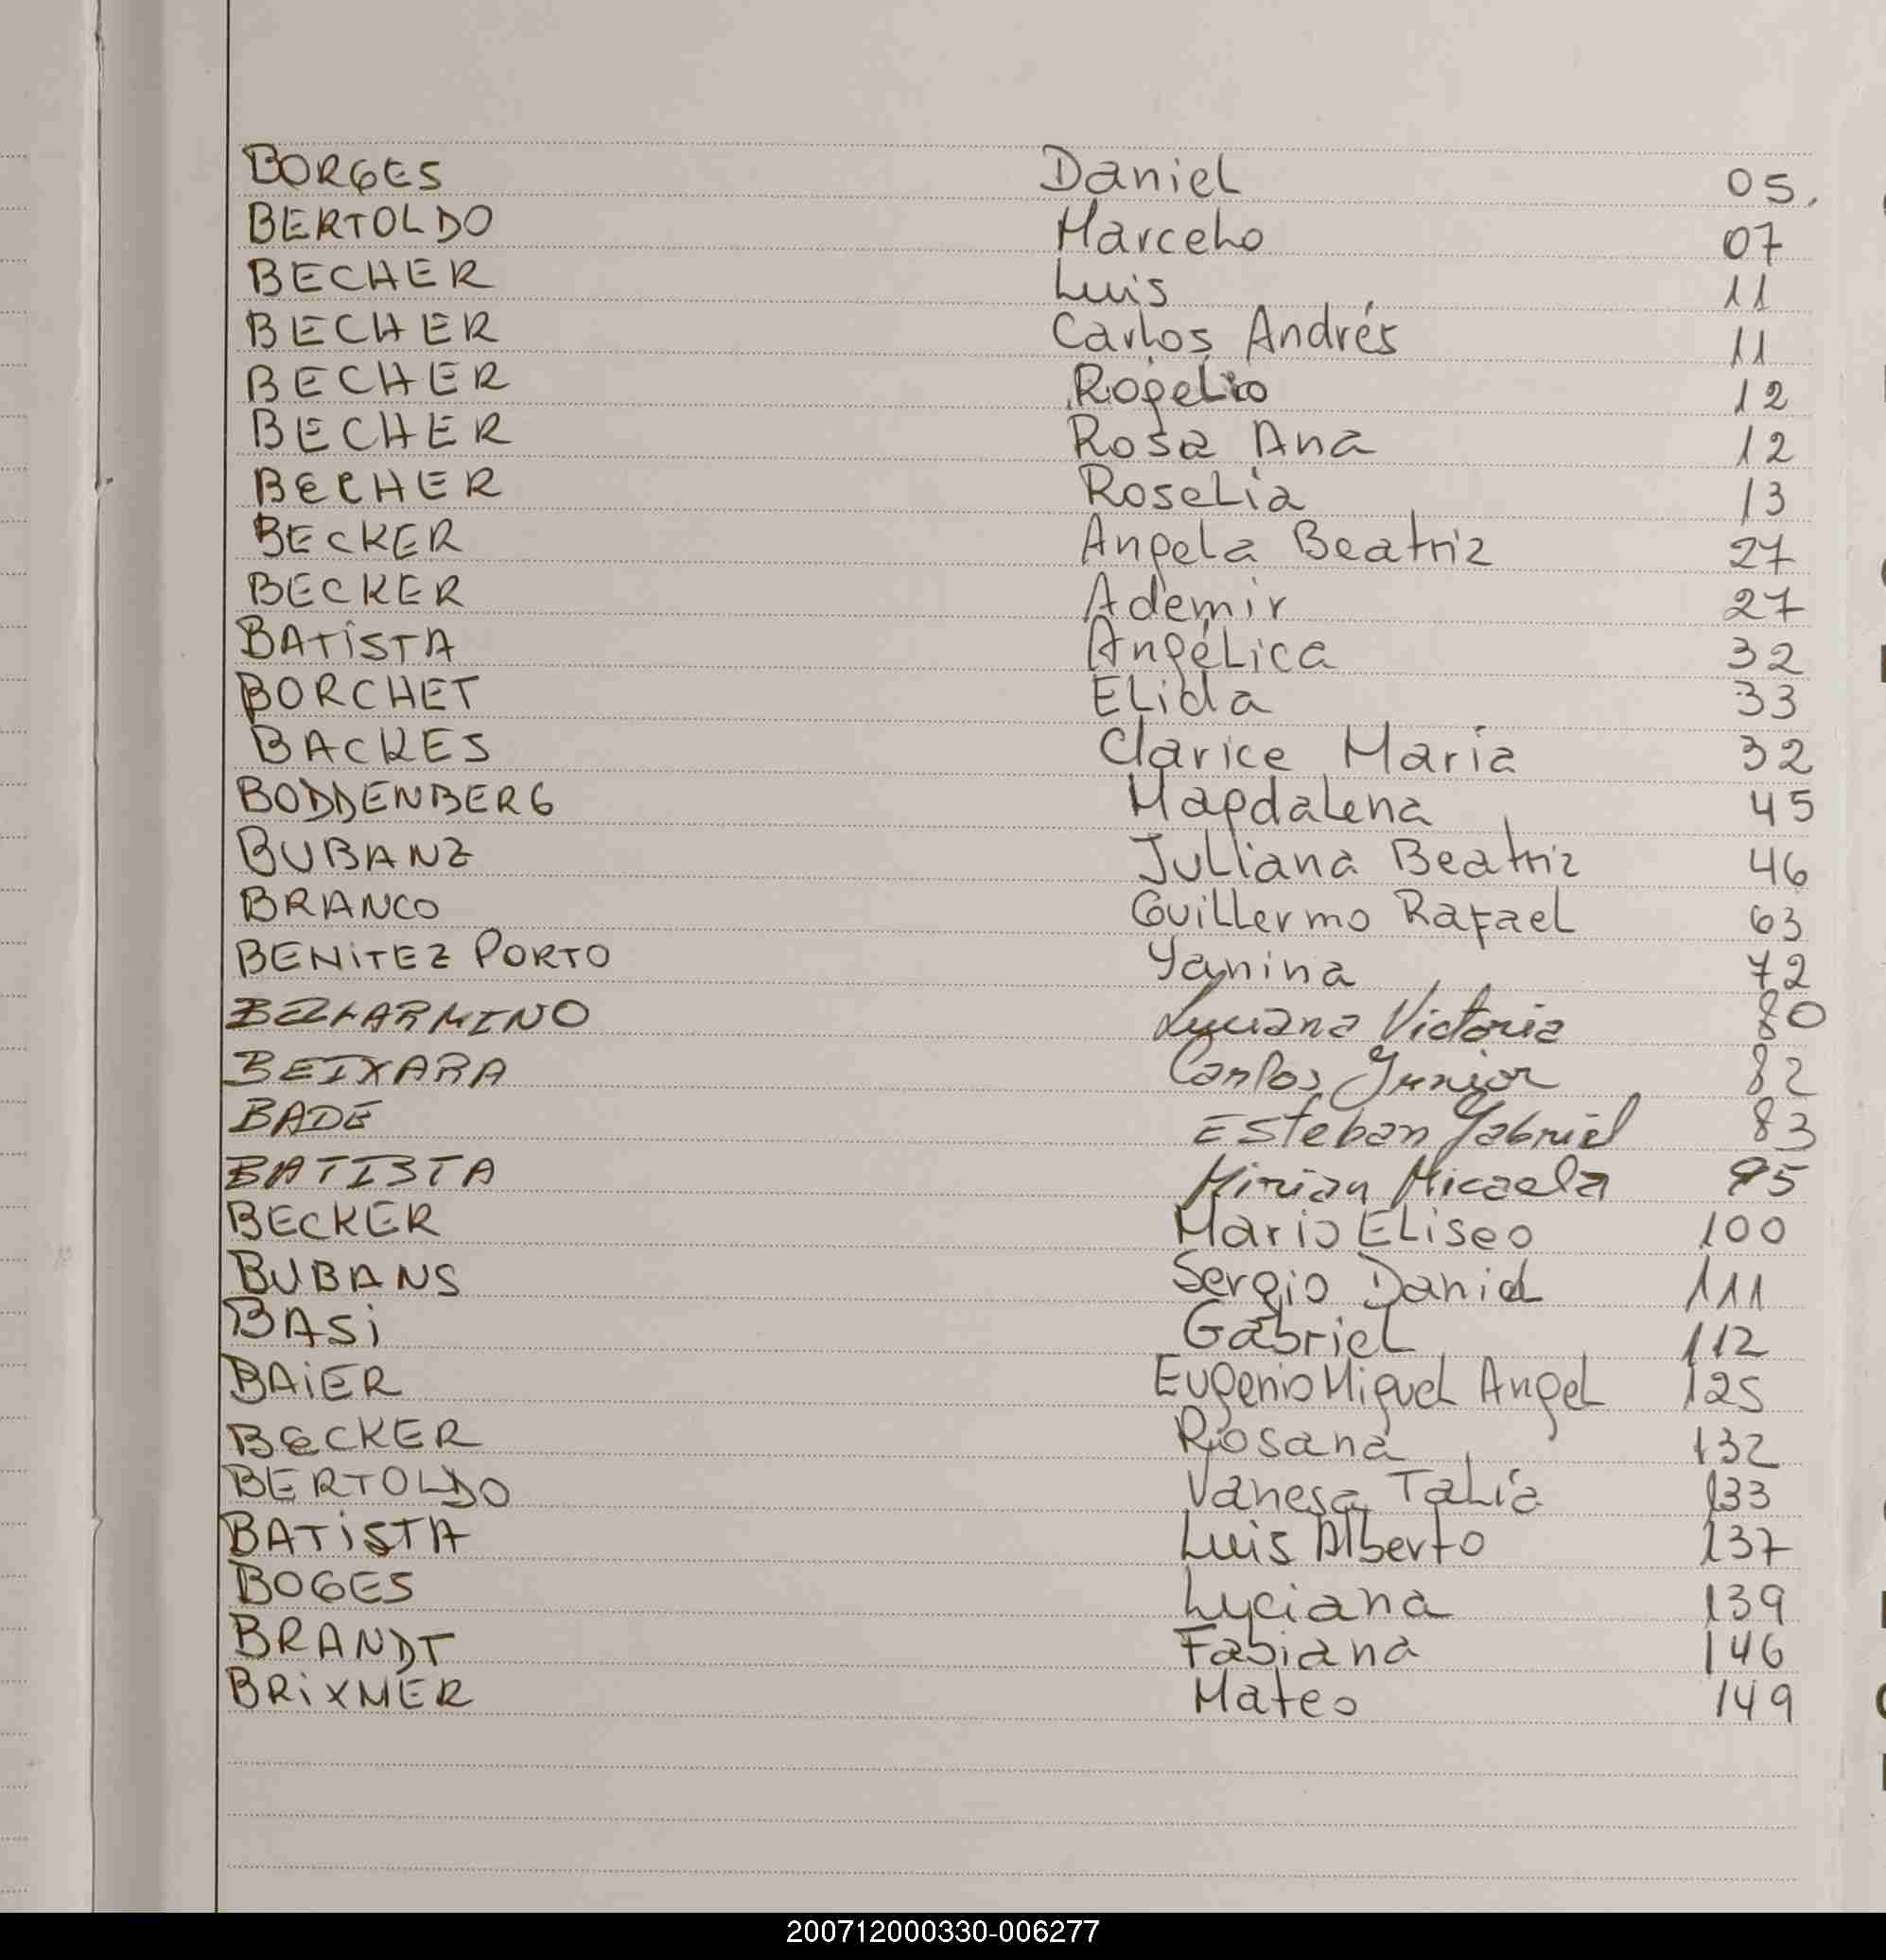 BORGES Daniel 05.
BERTOLDO Marcelo 07
BECHER Luis 11
BECHER Carlos Andrés 11
BECHER Rogelio 12
BECHER Rosa Ana 12
BECHER Roselia 13
BECKER Angela Beatriz 27
BECKER Ademir 27
BATISTA Angélica 32
BORCHET Elida 33
BACKES Clarice María 32
BODDENBERG Magdalena 45
BUBANZ Julliana Beatriz 46
BRANCO Guillermo Rafael 63
BENITEZ PORTO Yanina 72
BELARMINO Luciana Victoria 80
BEIXARA Carlos Junior 82
BADE Esteban Gabriel 83
BATISTA Mirian Micaela 95
BECKER Mario Eliseo 100
BUBANS Sergio Daniel 111
BASI Gabriel 112
BAIER Eugenio Miguel Angel 125
BECKER Rosana 132
BERTOLDO Vanesa Talía 133
BATISTA Luis Alberto 137
BOGES Luciana 139
BRANDT Fabiana 146
BRIXNER Mateo 149
200712000330-006277